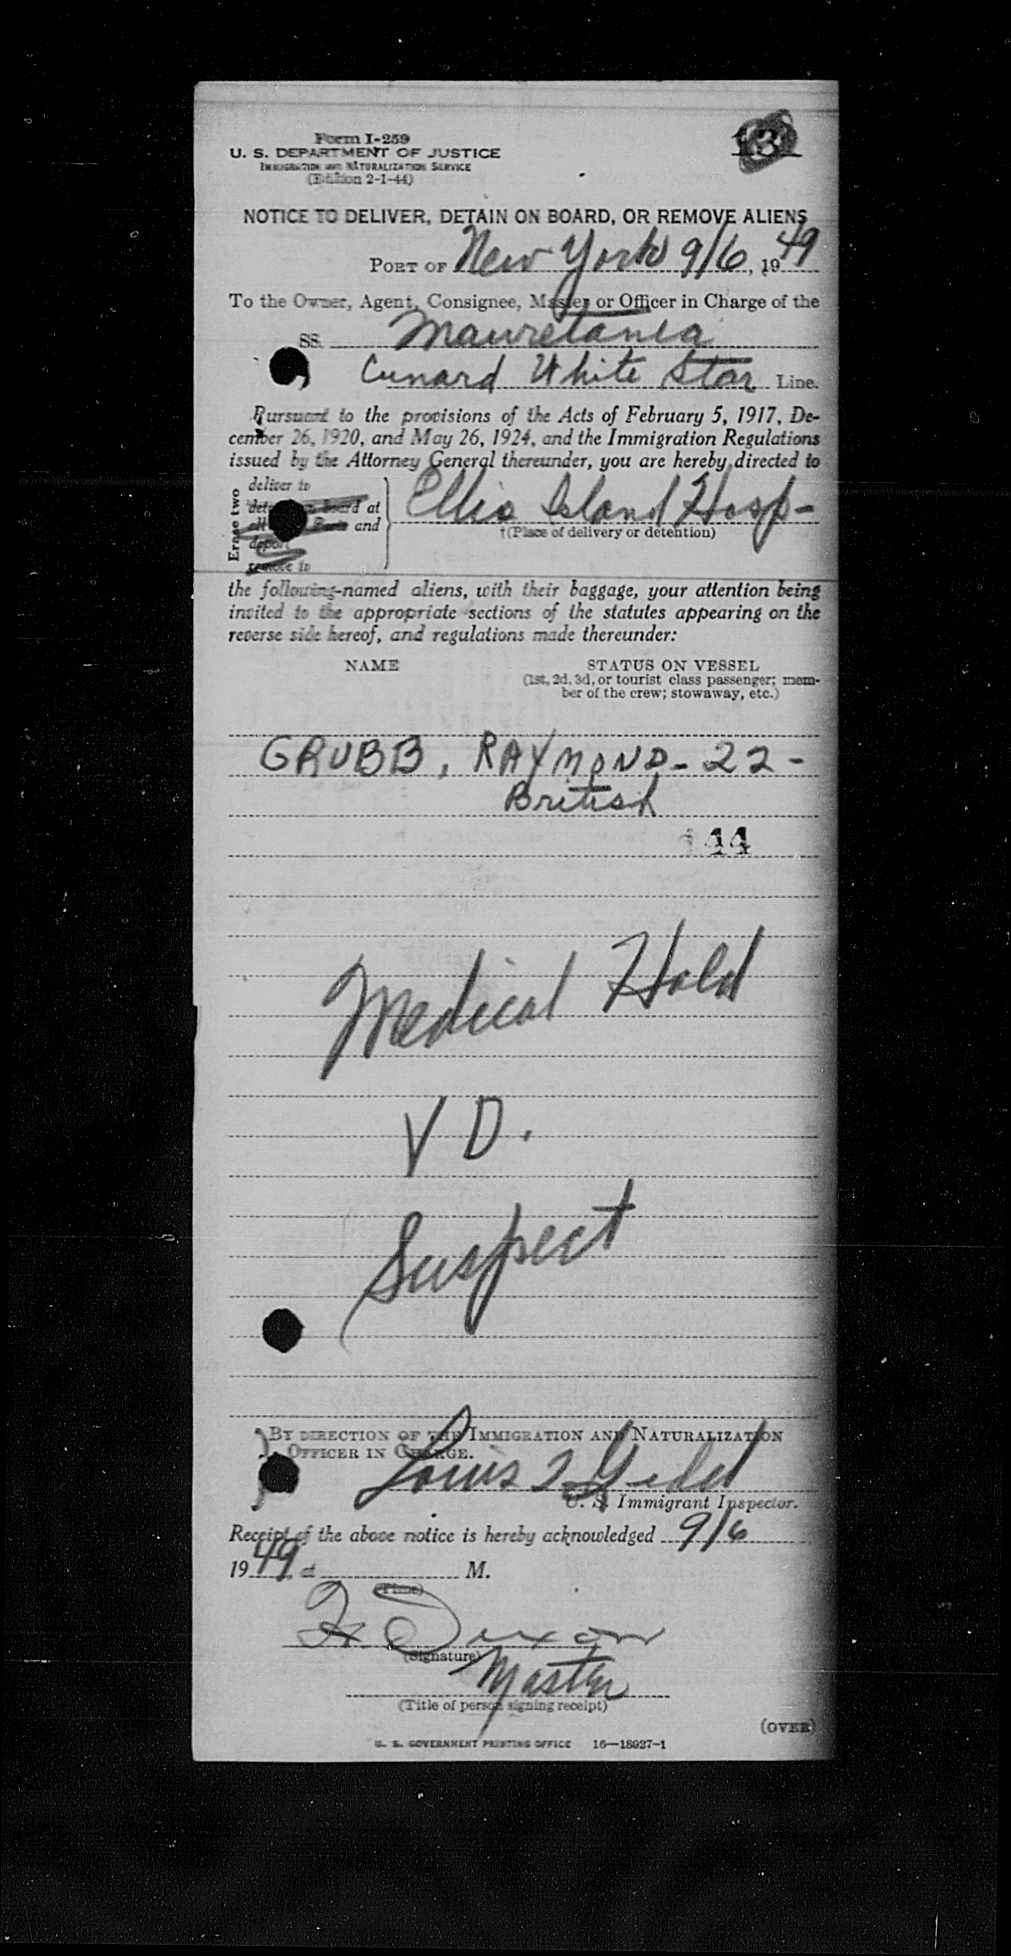 Form I-259
U. S. DEPARTMENT OF JUSTICE
IMMIGRATION AND NATURALIZATION SERVICE
(Edition 2-1-44)
13
NOTICE TO DELIVER, DETAIN ON BOARD, OR REMOVE ALIENS
PORT OF New York 9/6, 1949
To the Owner, Agent, Consignee, Master or Officer in Charge of the
SS. Mauretania
Cunard White Star Line.
Pursuant to the provisions of the Acts of February 5, 1917, De-
cember 26, 1920, and May 26, 1924, and the Immigration Regulations
issued by the Attorney General thereunder, you are hereby directed to
Erase two
deliver to
board at
and
remove to
Ellis Island Hosp-
†(Place of delivery or detention)
the following-named aliens, with their baggage, your attention being
invited to the appropriate sections of the statutes appearing on the
reverse side hereof, and regulations made thereunder:
NAME STATUS ON VESSEL
(1st, 2d, 3d, or tourist class passenger; mem-
ber of the crew; stowaway, etc.)
GRUBB, RAYMOND - 22 -
British
44
Medical Hold
V D.
Suspect
BY DIRECTION OF THE IMMIGRATION AND NATURALIZATION
OFFICER IN CHARGE.
Louis
U. S. Immigrant Inspector.
Receipt of the above notice is hereby acknowledged 9/6
1949 at M.
(Time)
(Signature)
Master
(Title of person signing receipt)
(OVER)
U. S. GOVERNMENT PRINTING OFFICE 16—18927-1